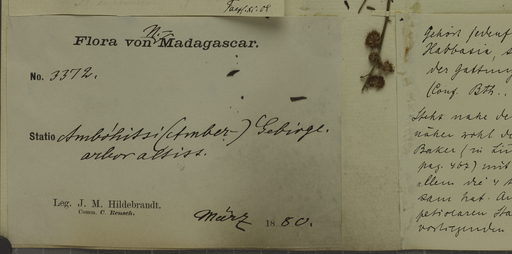 N.-
Flora von Madagascar.
No. 3372.
Statio Ambóhitsi (Amber-) Gebirge.
arbor altiss.
Leg. J. M. Hildebrandt.
Comm. C. Rensch.
März 1880.
Gehört jedenf
der Gattung
(Conf. Bth.
Steht nahe de
näher wohl de
Baker (in
pag. 467) mit
allem die 4
sam hat. An
petiolaren Sta
vorliegenden